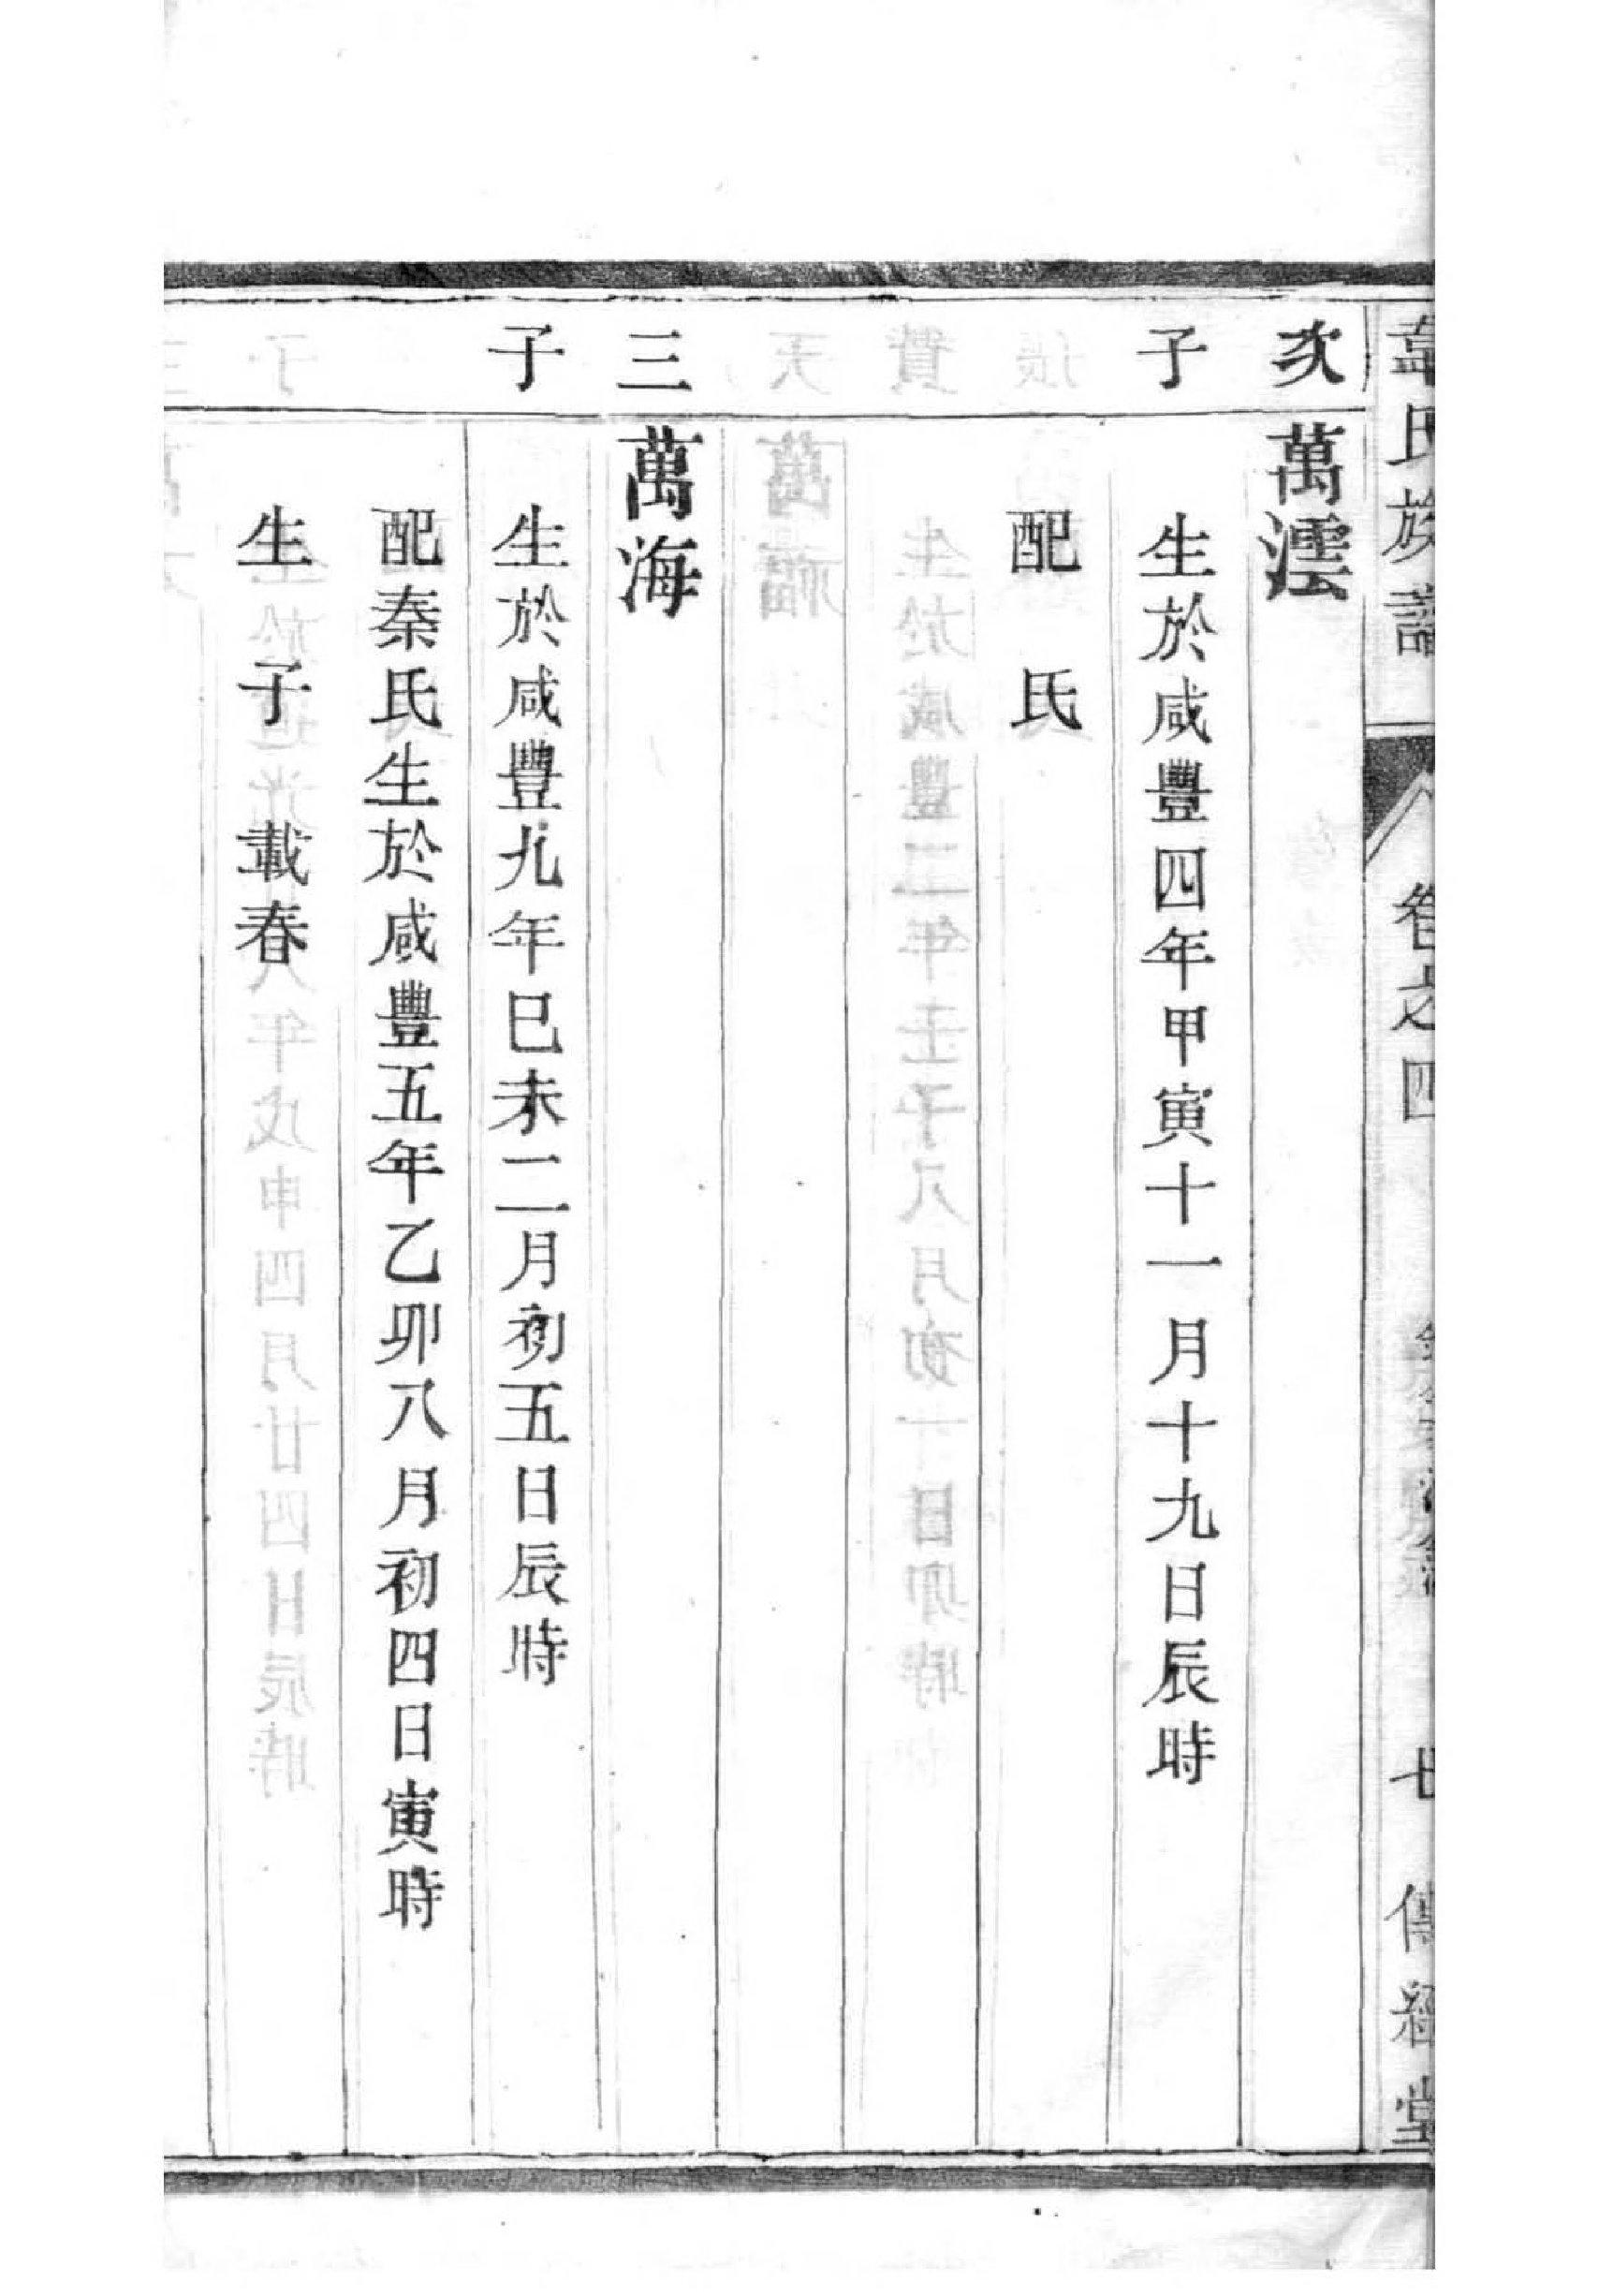 韋氏族譜 卷之四 七 傳經堂
次子
萬澐
生於咸豐四年甲寅十一月十九日辰時
配 氏
三子
萬海
生於咸豐九年巳未二月初五日辰時
配秦氏生於咸豐五年乙卯八月初四日寅時
生 子 載春